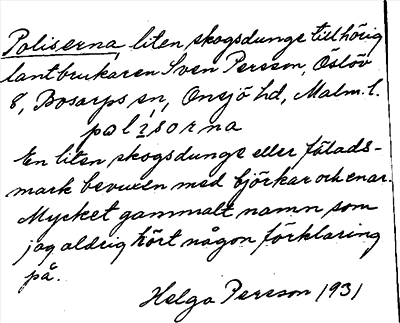 Poliserna, liten skogsdunge tillhörig
lantbrukaren Sven Persson, Öslöv
8, Bosarps sn, Onsjö hd, Malm. l.
polisorna
En liten skogsdunge eller fälads-
mark bevuxen med björkar och enar.
Mycket gammalt namn som
jag aldrig hört någon förklaring
på.
Helga Persson 1931